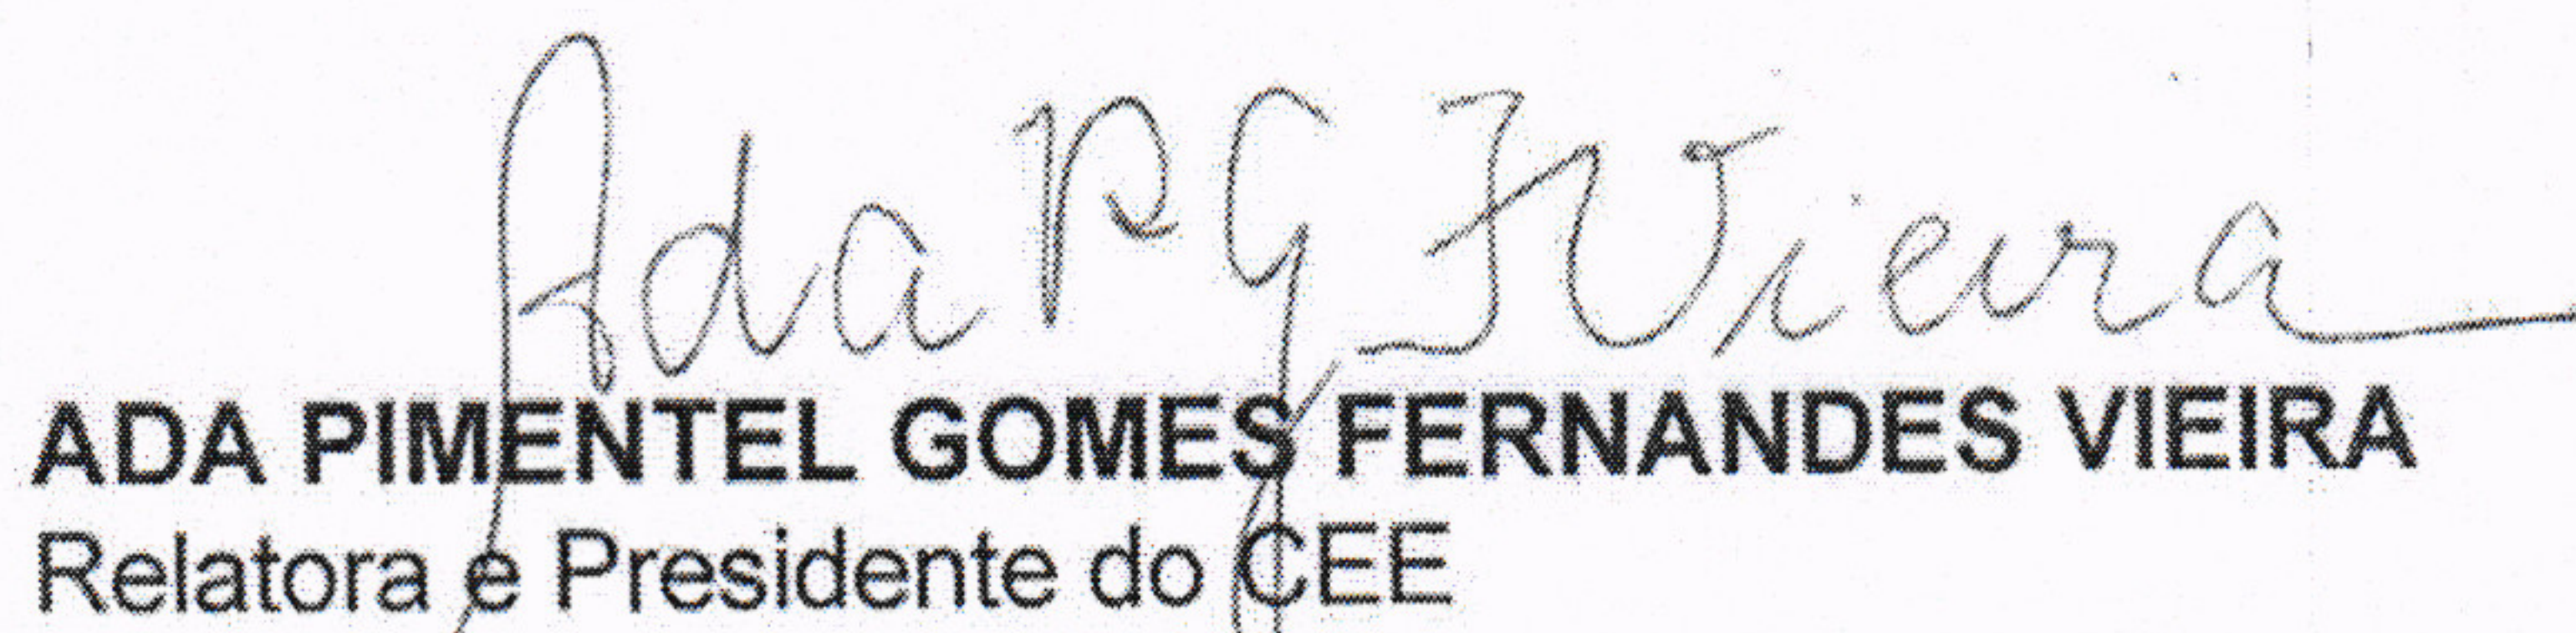 Ada P G F Vieira
ADA PIMENTEL GOMES FERNANDES VIEIRA
Relatora e Presidente do CEE